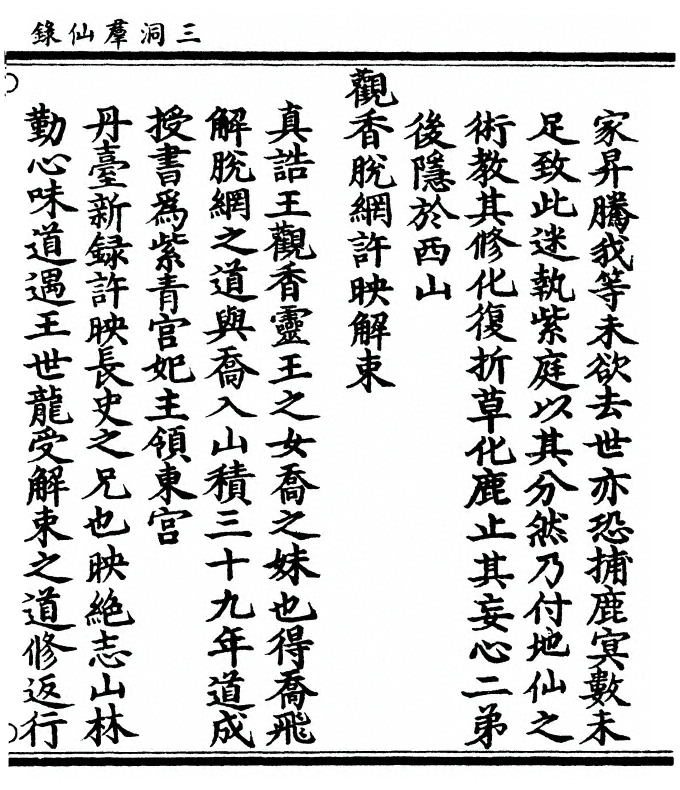 三洞羣仙錄
家昇騰我等未欲去世亦恐捕鹿冥數未
足致此迷執紫庭以其分然乃付地仙之
術教其修化復折草化鹿止其妄心二弟
後隱於西山
觀香脫網許映解束
真誥王觀香靈王之女喬之妹也得喬飛
解脫網之道與喬入山積三十九年道成
授書爲紫青宮妃主領東宮
丹臺新録許映長史之兄也映絕志山林
勤心味道遇王世龍受解束之道修返行